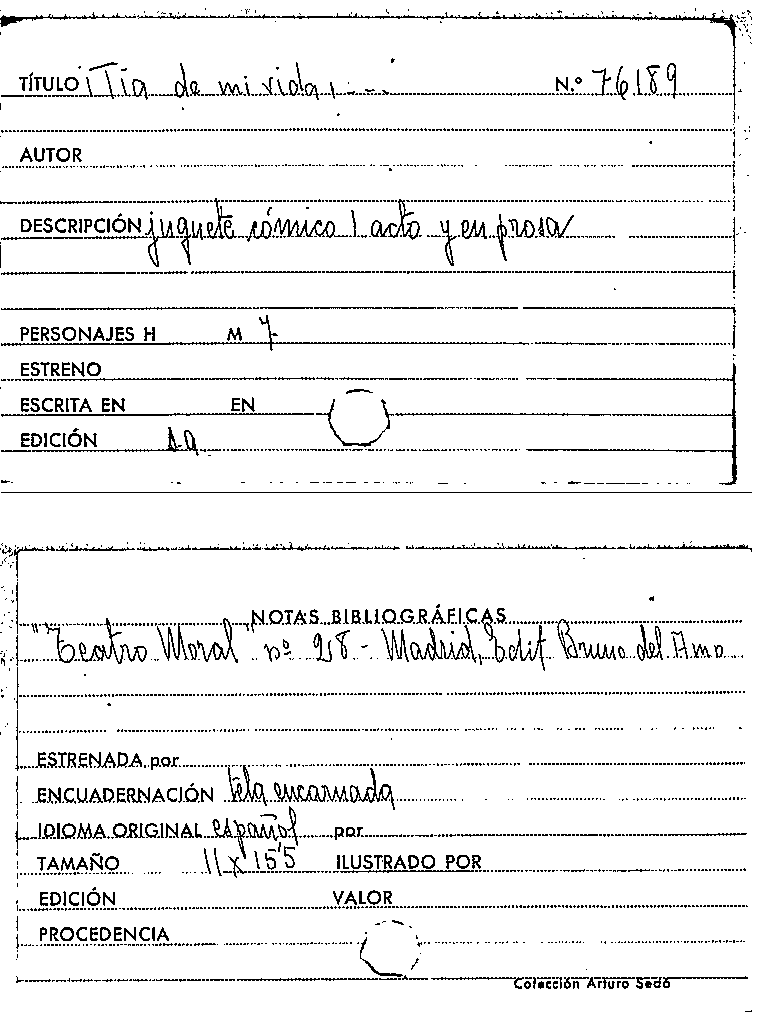 TÍTULO ¡Tía de mi vida! --- N.º 76189
AUTOR
DESCRIPCIÓN juguete cómico 1 acto y en prosa
PERSONAJES H M 7
ESTRENO
ESCRITA EN EN
EDICIÓN 1a
NOTAS BIBLIOGRÁFICAS
"Teatro Moral" nº 28 - Madrid, Edit Bruno del Amo
ESTRENADA por
ENCUADERNACIÓN tela encarnada
IDIOMA ORIGINAL español por
TAMAÑO 11 x 15'5 ILUSTRADO POR
EDICIÓN VALOR
PROCEDENCIA
Colección Arturo Sedó